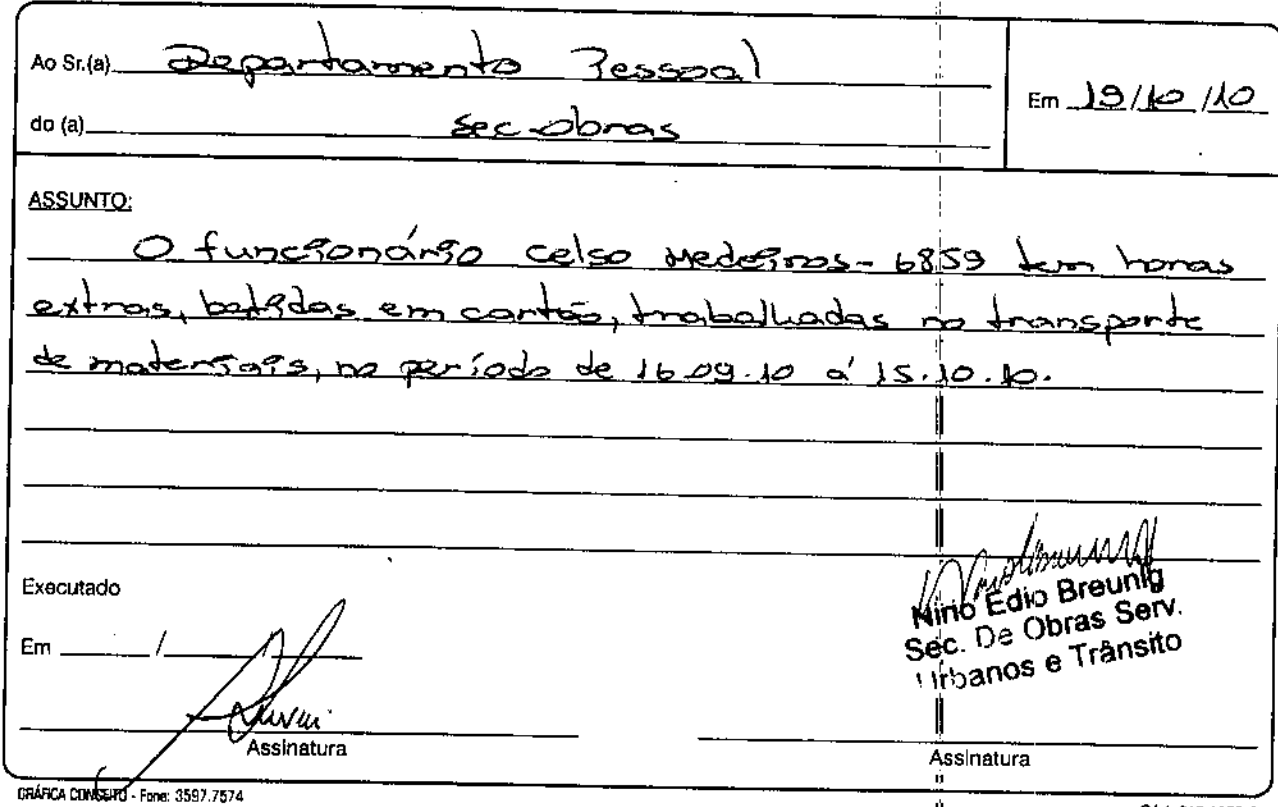 Ao Sr.(a) Departamento Pessoal
do (a) Sec. Obras
Em 19/10/10
ASSUNTO:
O funcionário Celso Medeiros - 6859 tem horas
extras, batidas em cartão, trabalhadas no transporte
de materiais, no período de 16.09.10 á 15.10.10.
Executado
Em / 
Nirio Edio Breunig
Sec. De Obras Serv.
Urbanos e Trânsito
Assinatura
Assinatura
GRÁFICA CONCEITO - Fone: 3597.7574